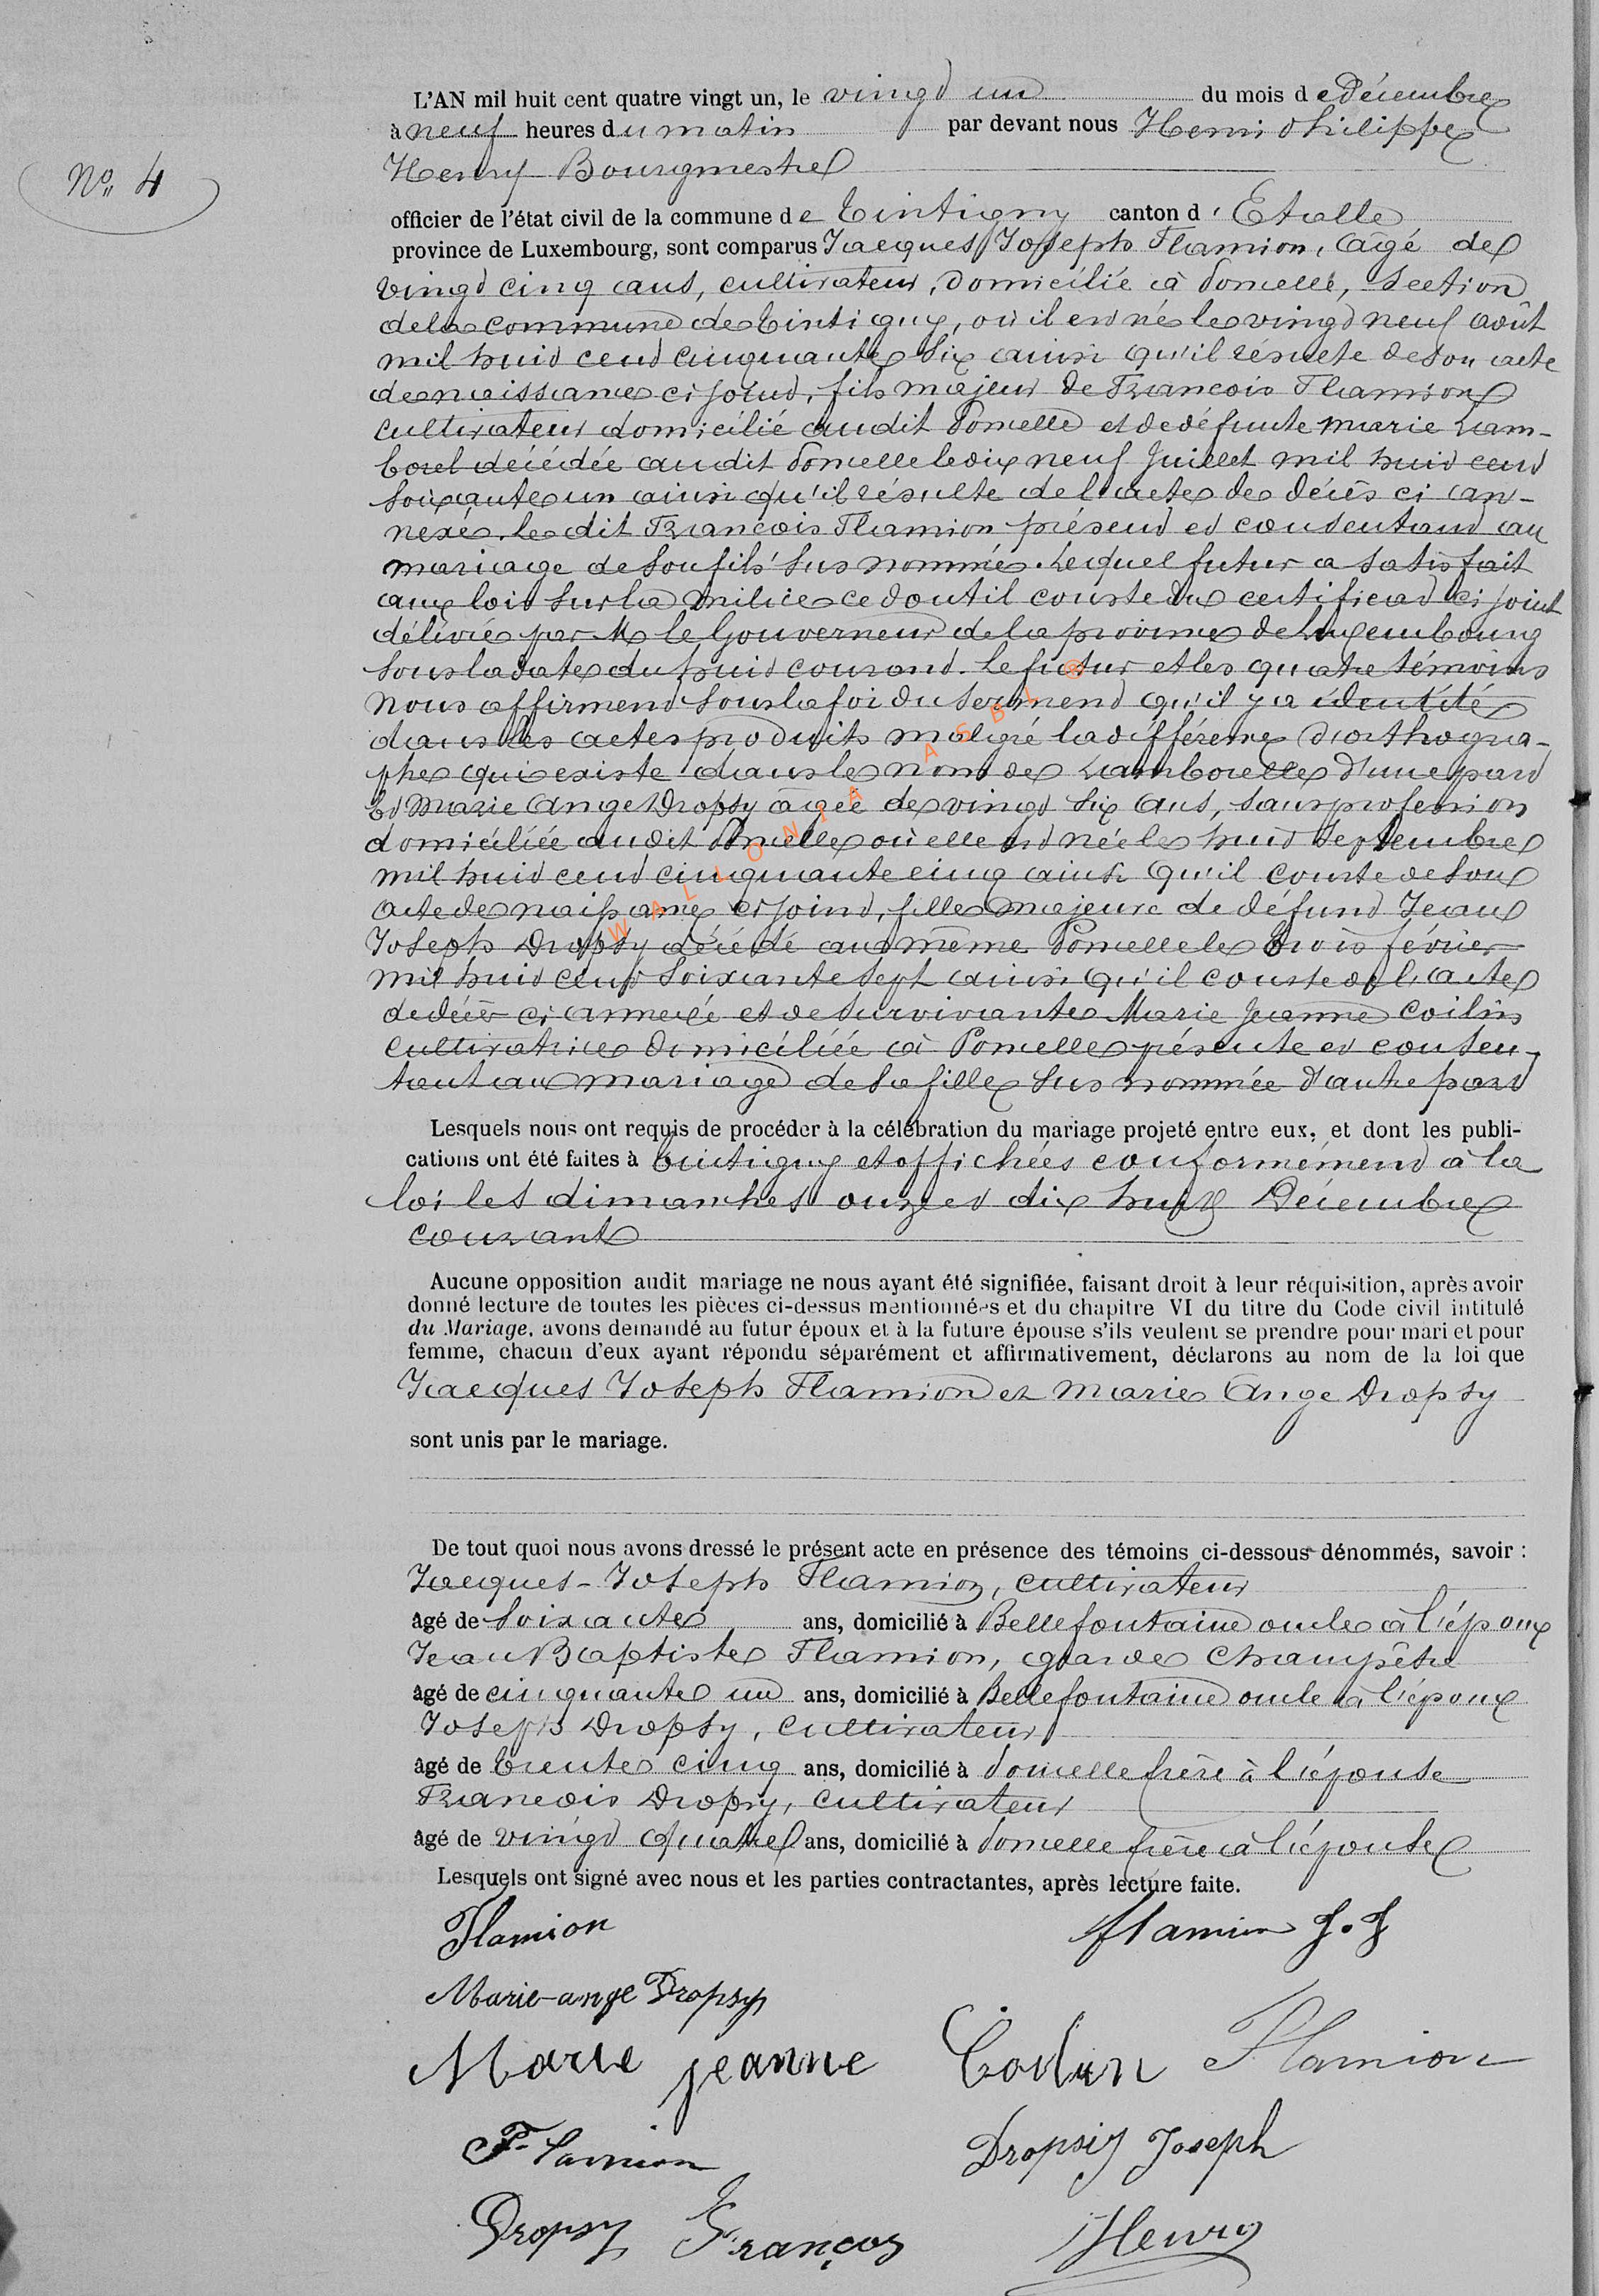 L'AN mil huit cent quatre vingt un, le vingt un du mois de Décembre
à neuf heures du matin par devant nous Henri Philippe
Nº 4
Henry Bourgmestre
officier de l'état civil de la commune de Tintigny canton d'Etalle
province de Luxembourg, sont comparus Jacques Joseph Flamion, âgé de
vingt cinq ans, cultivateur, domicilié à Poncelle, section
de la commune de Tintigny, où il est né le vingt neuf août
mil huit cent cinquante six ainsi qu'il résulte de son acte
de naissance ci joint, fils majeur de François Flamion
cultivateur domicilié audit Poncelle et de défunte Marie Lam-
borel décédée audit Poncelle le dix neuf Juillet mil huit cent
soixante un ainsi qu'il résulte de l'acte de décès ci an-
nexé. Le dit François Flamion présent et consentant au
mariage de son fils sus nommé. Lequel futur a satisfait
aux lois sur la milice ce dont il conste du certificat ci joint
délivré par Mr le Gouverneur de la province de Luxembourg
sous la date du huit courant. Le futur et les quatre témoins
nous affirment sous la foi du serment qu'il y a identité
dans les actes produits malgré la différence d'orthogra-
phe qui existe dans le nom de Lamborelle d'une part
Et Marie Ange Dropsy âgée de vingt six ans, sans profession
domiciliée audit Poncelle où elle est née le huit Septembre
mil huit cent cinquante cinq ainsi qu'il conste de son
acte de naissance ci joint, fille majeure de défunt Jean
Joseph Dropsy décédé au même Poncelle le trois février
mil huit cent soixante sept ainsi qu'il conste de l'acte
de décès ci annexé et de survivante Marie Jeanne Coilin
cultivatrice domiciliée à Poncelle présente et consen-
tant au mariage de sa fille sus nommée d'autre part
Lesquels nous ont requis de procéder à la célébration du mariage projeté entre eux, et dont les publi-
cations ont été faites à Tintigny et affichées conformément à la
loi les dimanches onze et dix huit Décembre
courant
Aucune opposition audit mariage ne nous ayant été signifiée, faisant droit à leur réquisition, après avoir
donné lecture de toutes les pièces ci-dessus mentionnées et du chapitre VI du titre du Code civil intitulé
du Mariage, avons demandé au futur époux et à la future épouse s'ils veulent se prendre pour mari et pour
femme, chacun d'eux ayant répondu séparément et affirmativement, déclarons au nom de la loi que
Jacques Joseph Flamion et Marie Ange Dropsy
sont unis par le mariage.
De tout quoi nous avons dressé le présent acte en présence des témoins ci-dessous dénommés, savoir :
Jacques-Joseph Flamion, cultivateur
âgé de soixante ans, domicilié à Bellefontaine oncle à l'époux
Jean Baptiste Flamion, garde champêtre
âgé de cinquante un ans, domicilié à Bellefontaine oncle à l'époux
Joseph Dropsy, cultivateur
âgé de trente cinq ans, domicilié à Poncelle frère à l'épouse
François Dropsy, cultivateur
âgé de vingt quatre ans, domicilié à Poncelle frère à l'épouse
Lesquels ont signé avec nous et les parties contractantes, après lecture faite.
Flamion flamion J.J
Marie-ange Dropsy
Marie jeanne Coilin Flamion
F. lamion Dropsiy Joseph
Dropsy François Henry
WALLONIA ASBL ®